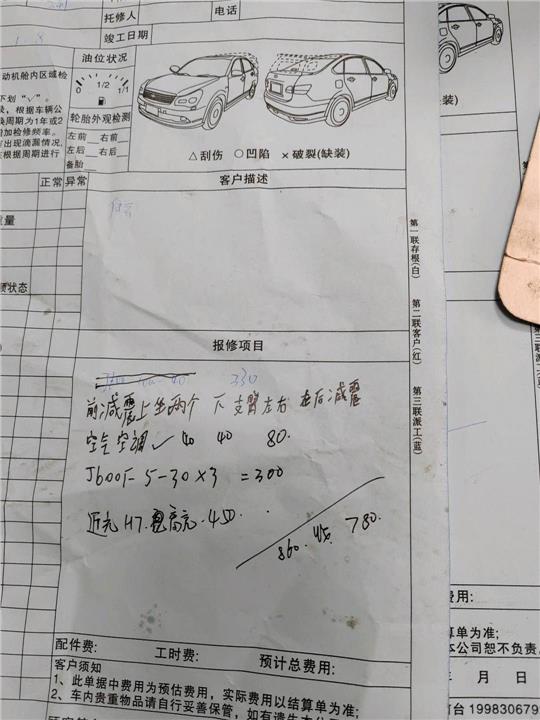 托修人
电话
竣工日期
动机舱内区域检
油位状况
0 1/2 1/1
下划“√”。
根据车辆公
换周期为1年或2
加检修频率。
出现滴漏情况,
根据周期进行
轮胎外观检测
左前 右前
左后 右后
备胎
△刮伤 ○凹陷 ×破裂(缺装)
正常 异常
客户描述
量
状态
第一联存根(白)
第二联客户(红)
第三联派工(蓝)
报修项目
330
前减震上坐两个 下支臂左右 左后减震
空气空调 ✓ 40 40 80.
5-30×3 =300
近光H7 450
860. 收 780.
配件费: 工时费: 预计总费用:
客户须知
1、此单据中费用为预估费用,实际费用以结算单为准;
2、车内贵重物品请自行妥善保管,如有遗失本公
缺装)
费用:
算单为准;
本公司恕不负责。
年 月 日
台 1998306792